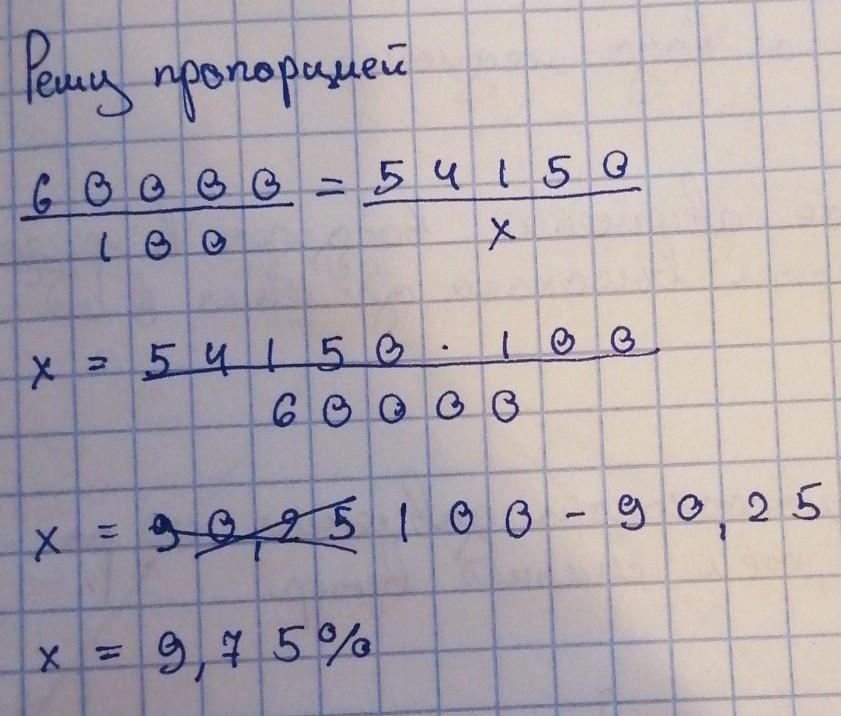 Решу пропорцией
60000 = 54150
100 x
x = 54150 · 100
60000
x = 90,25 100 - 90,25
x = 9,75%